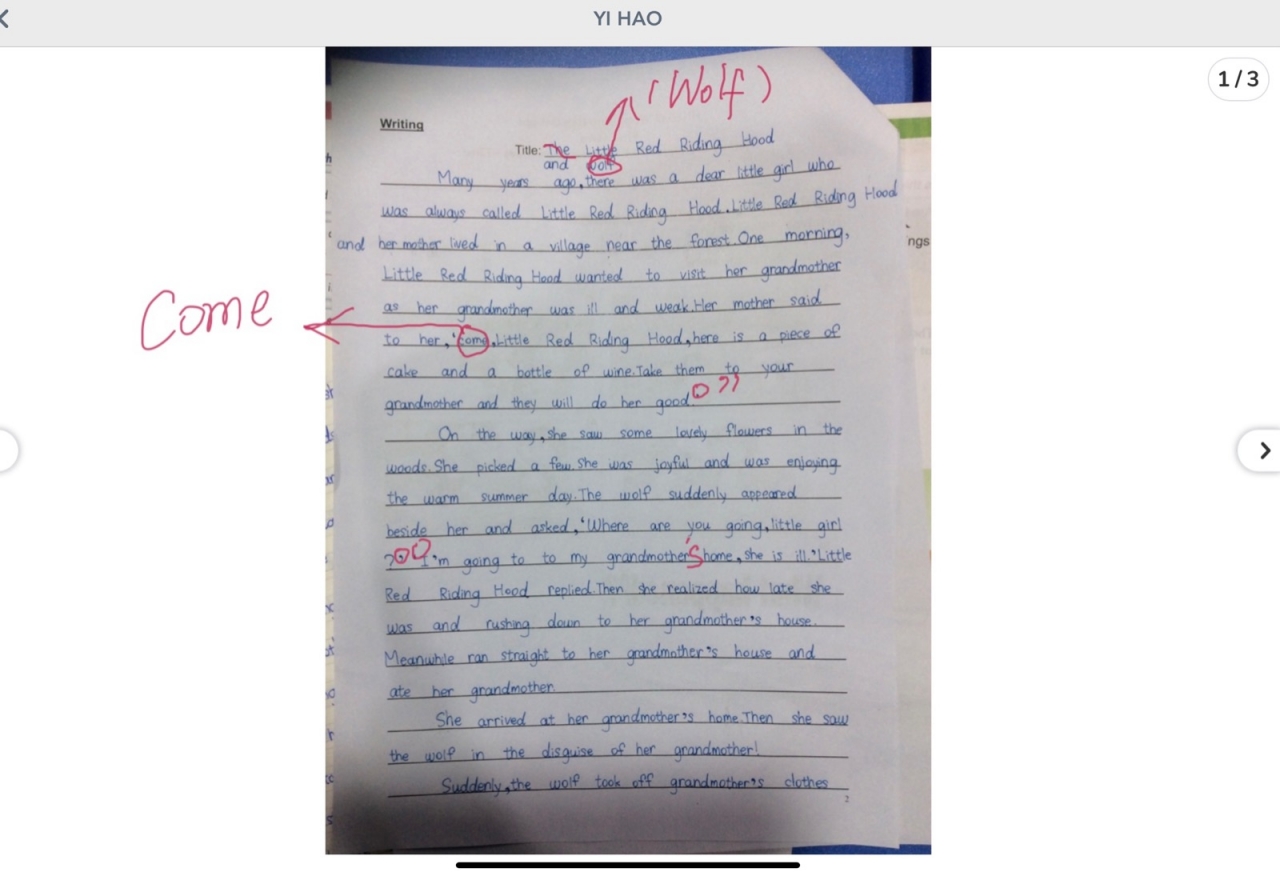 YI HAO
1 / 3
(Wolf)
Writing
Title: The Little Red Riding Hood
and wolf
Many years ago, there was a dear little girl who
was always called Little Red Riding Hood. Little Red Riding Hood
and her mother lived in a village near the forest. One morning,
ngs
Little Red Riding Hood wanted to visit her grandmother
Come
as her grandmother was ill and weak. Her mother said
to her, 'come, Little Red Riding Hood, here is a piece of
cake and a bottle of wine. Take them to your
grandmother and they will do her good.
On the way, she saw some lovely flowers in the
woods. She picked a few. She was joyful and was enjoying
the warm summer day. The wolf suddenly appeared
beside her and asked, 'Where are you going, little girl
?' I'm going to to my grandmother's home, she is ill.' Little
Red Riding Hood replied. Then she realized how late she
was and rushing down to her grandmother's house.
Meanwhile ran straight to her grandmother's house and
ate her grandmother.
She arrived at her grandmother's home. Then she saw
the wolf in the disguise of her grandmother!
Suddenly, the wolf took off grandmother's clothes
2